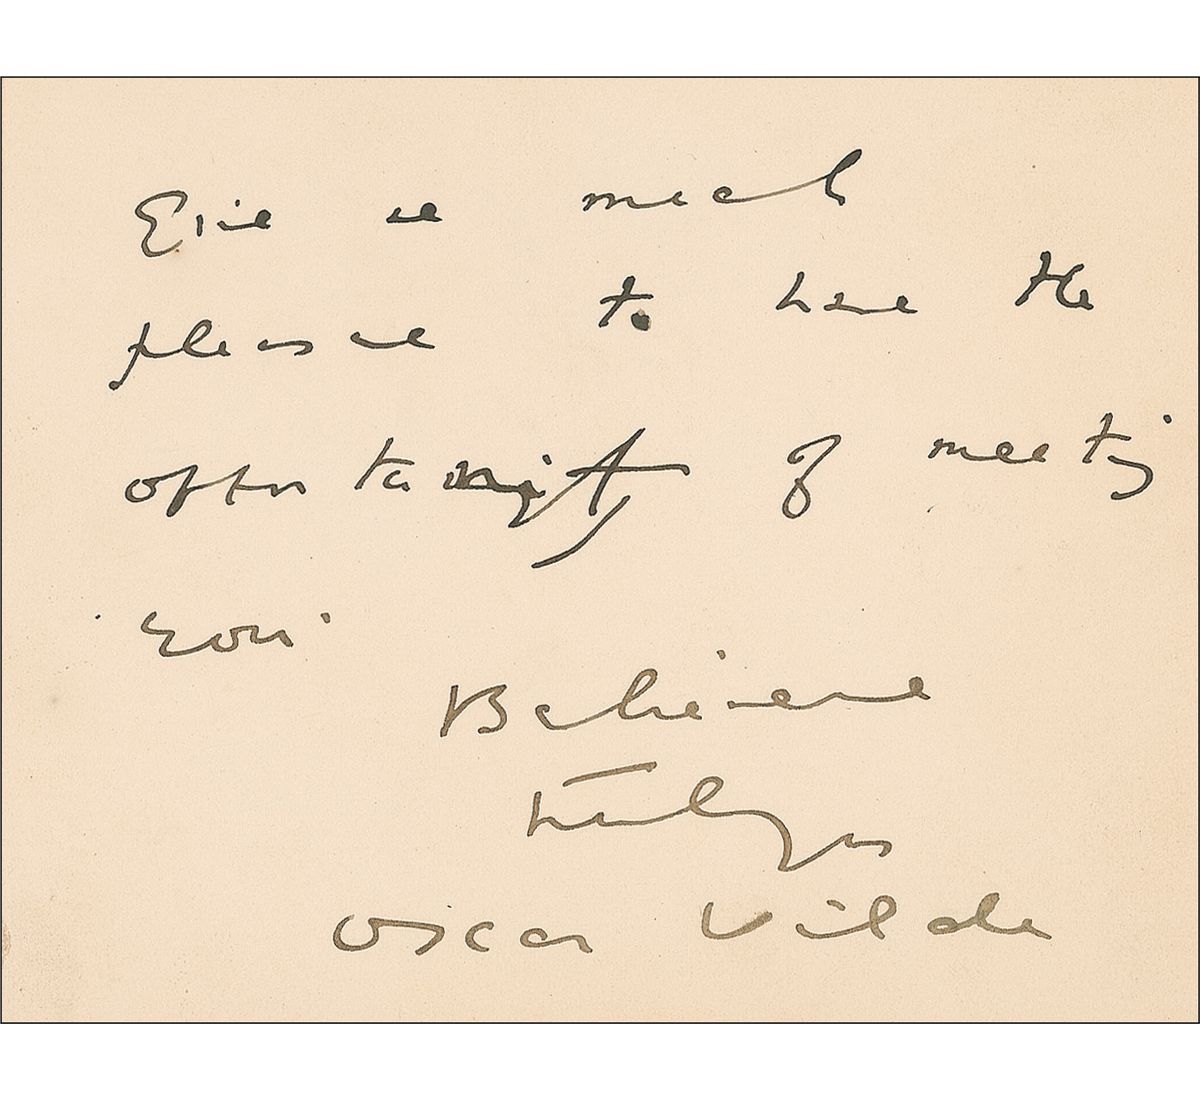 give me much
pleasure to have the
opportunity of meeting
you.
Believe me
truly yours
Oscar Wilde